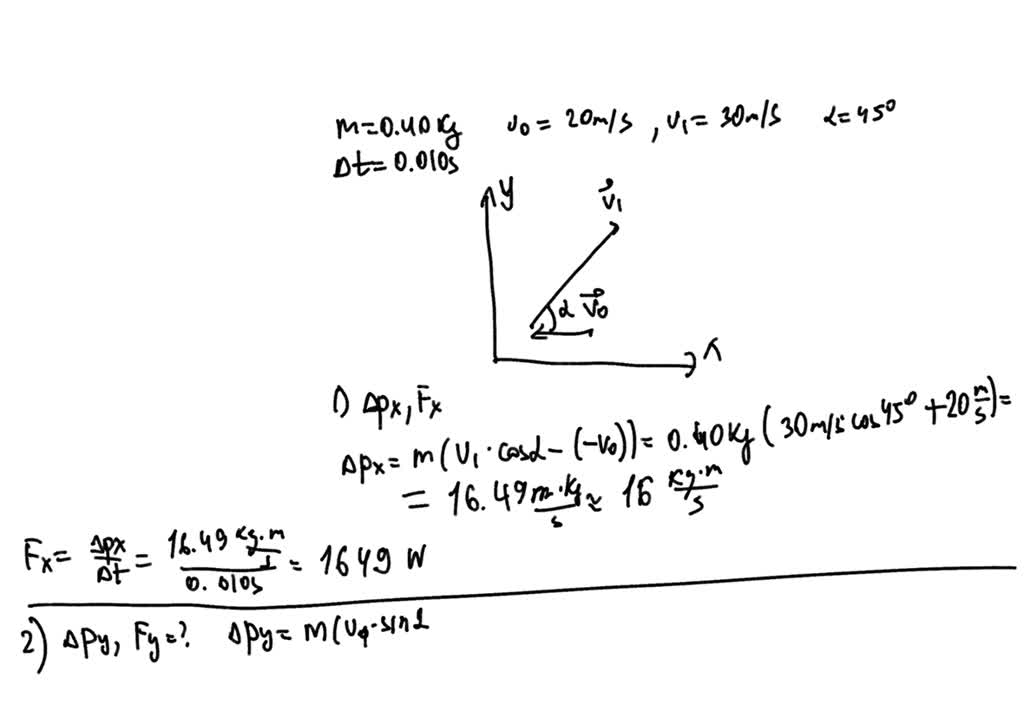 m=0.40 kg v₀ = 20m/s , v₁ = 30m/s α=45°
Δt=0.010s
y
v⃗₁
α v⃗₀
x
1) Δpx, Fx
Δpx = m(v₁·cosα-(-v₀)) = 0.40kg(30m/s cos45°+20 m/s)=
= 16.49 m·kg/s ≈ 16 kg·m/s
Fx = Δpx/Δt = 16.49 kg·m/s / 0.010s = 1649 W
2) Δpy, Fy=? Δpy = m(v₁·sinα